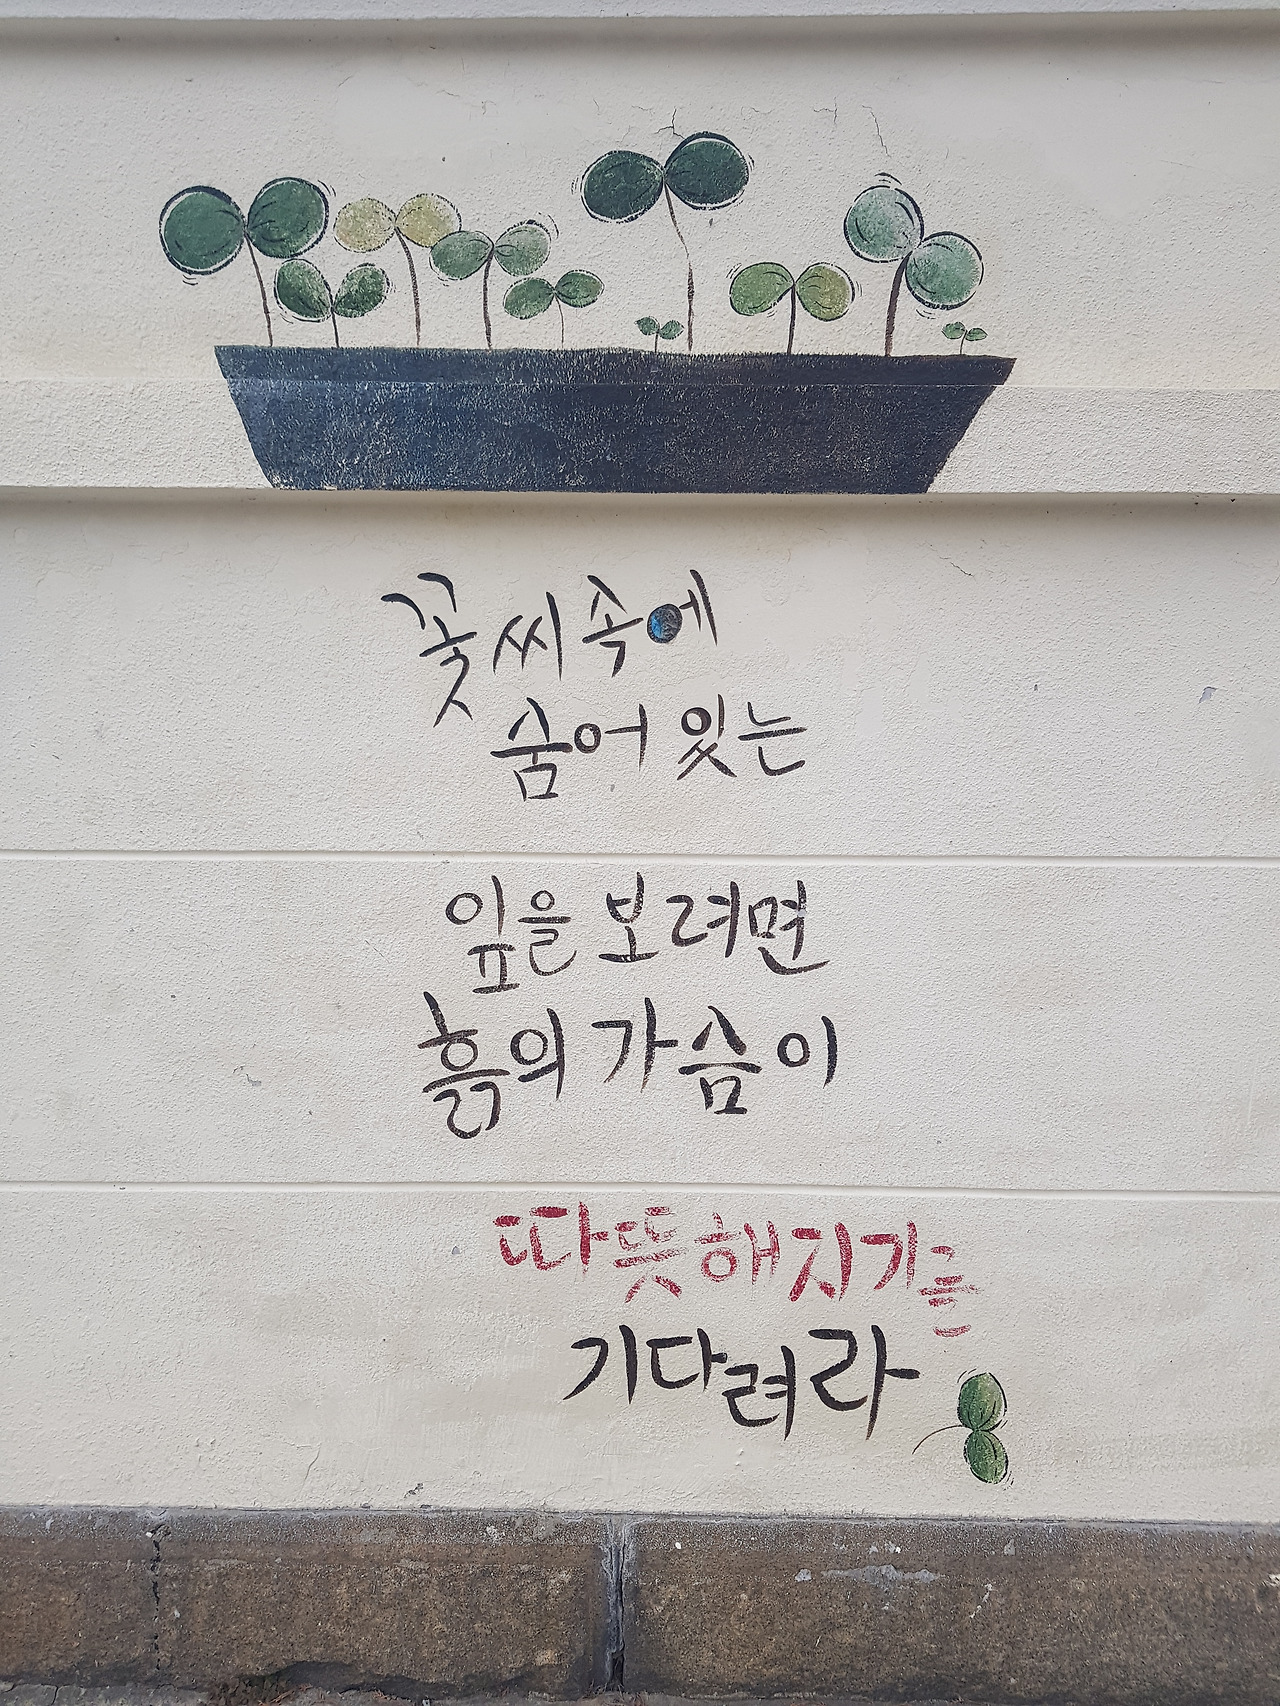 꽃씨속에
숨어 있는
잎을 보려면
흙의 가슴이
따뜻해지기를
기다려라